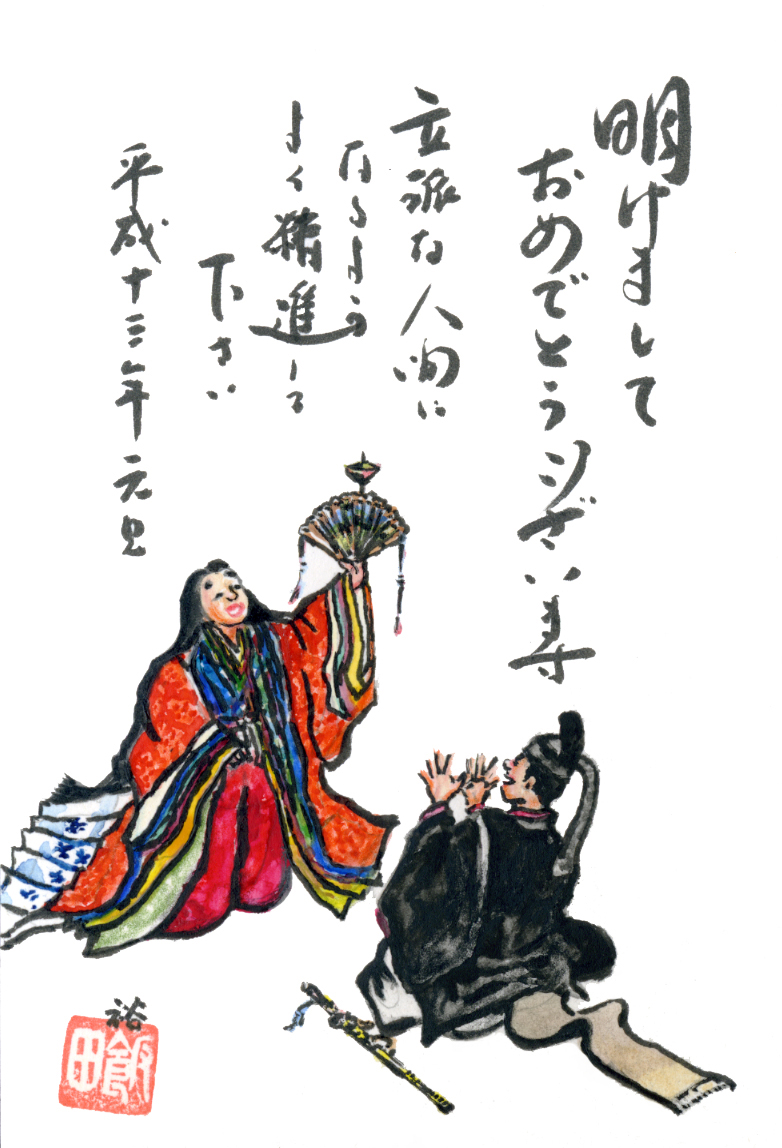 明けまして
おめでとうございます
立派な人間に
なるよう
よく精進して
下さい
平成十三年元旦
裕
飯田